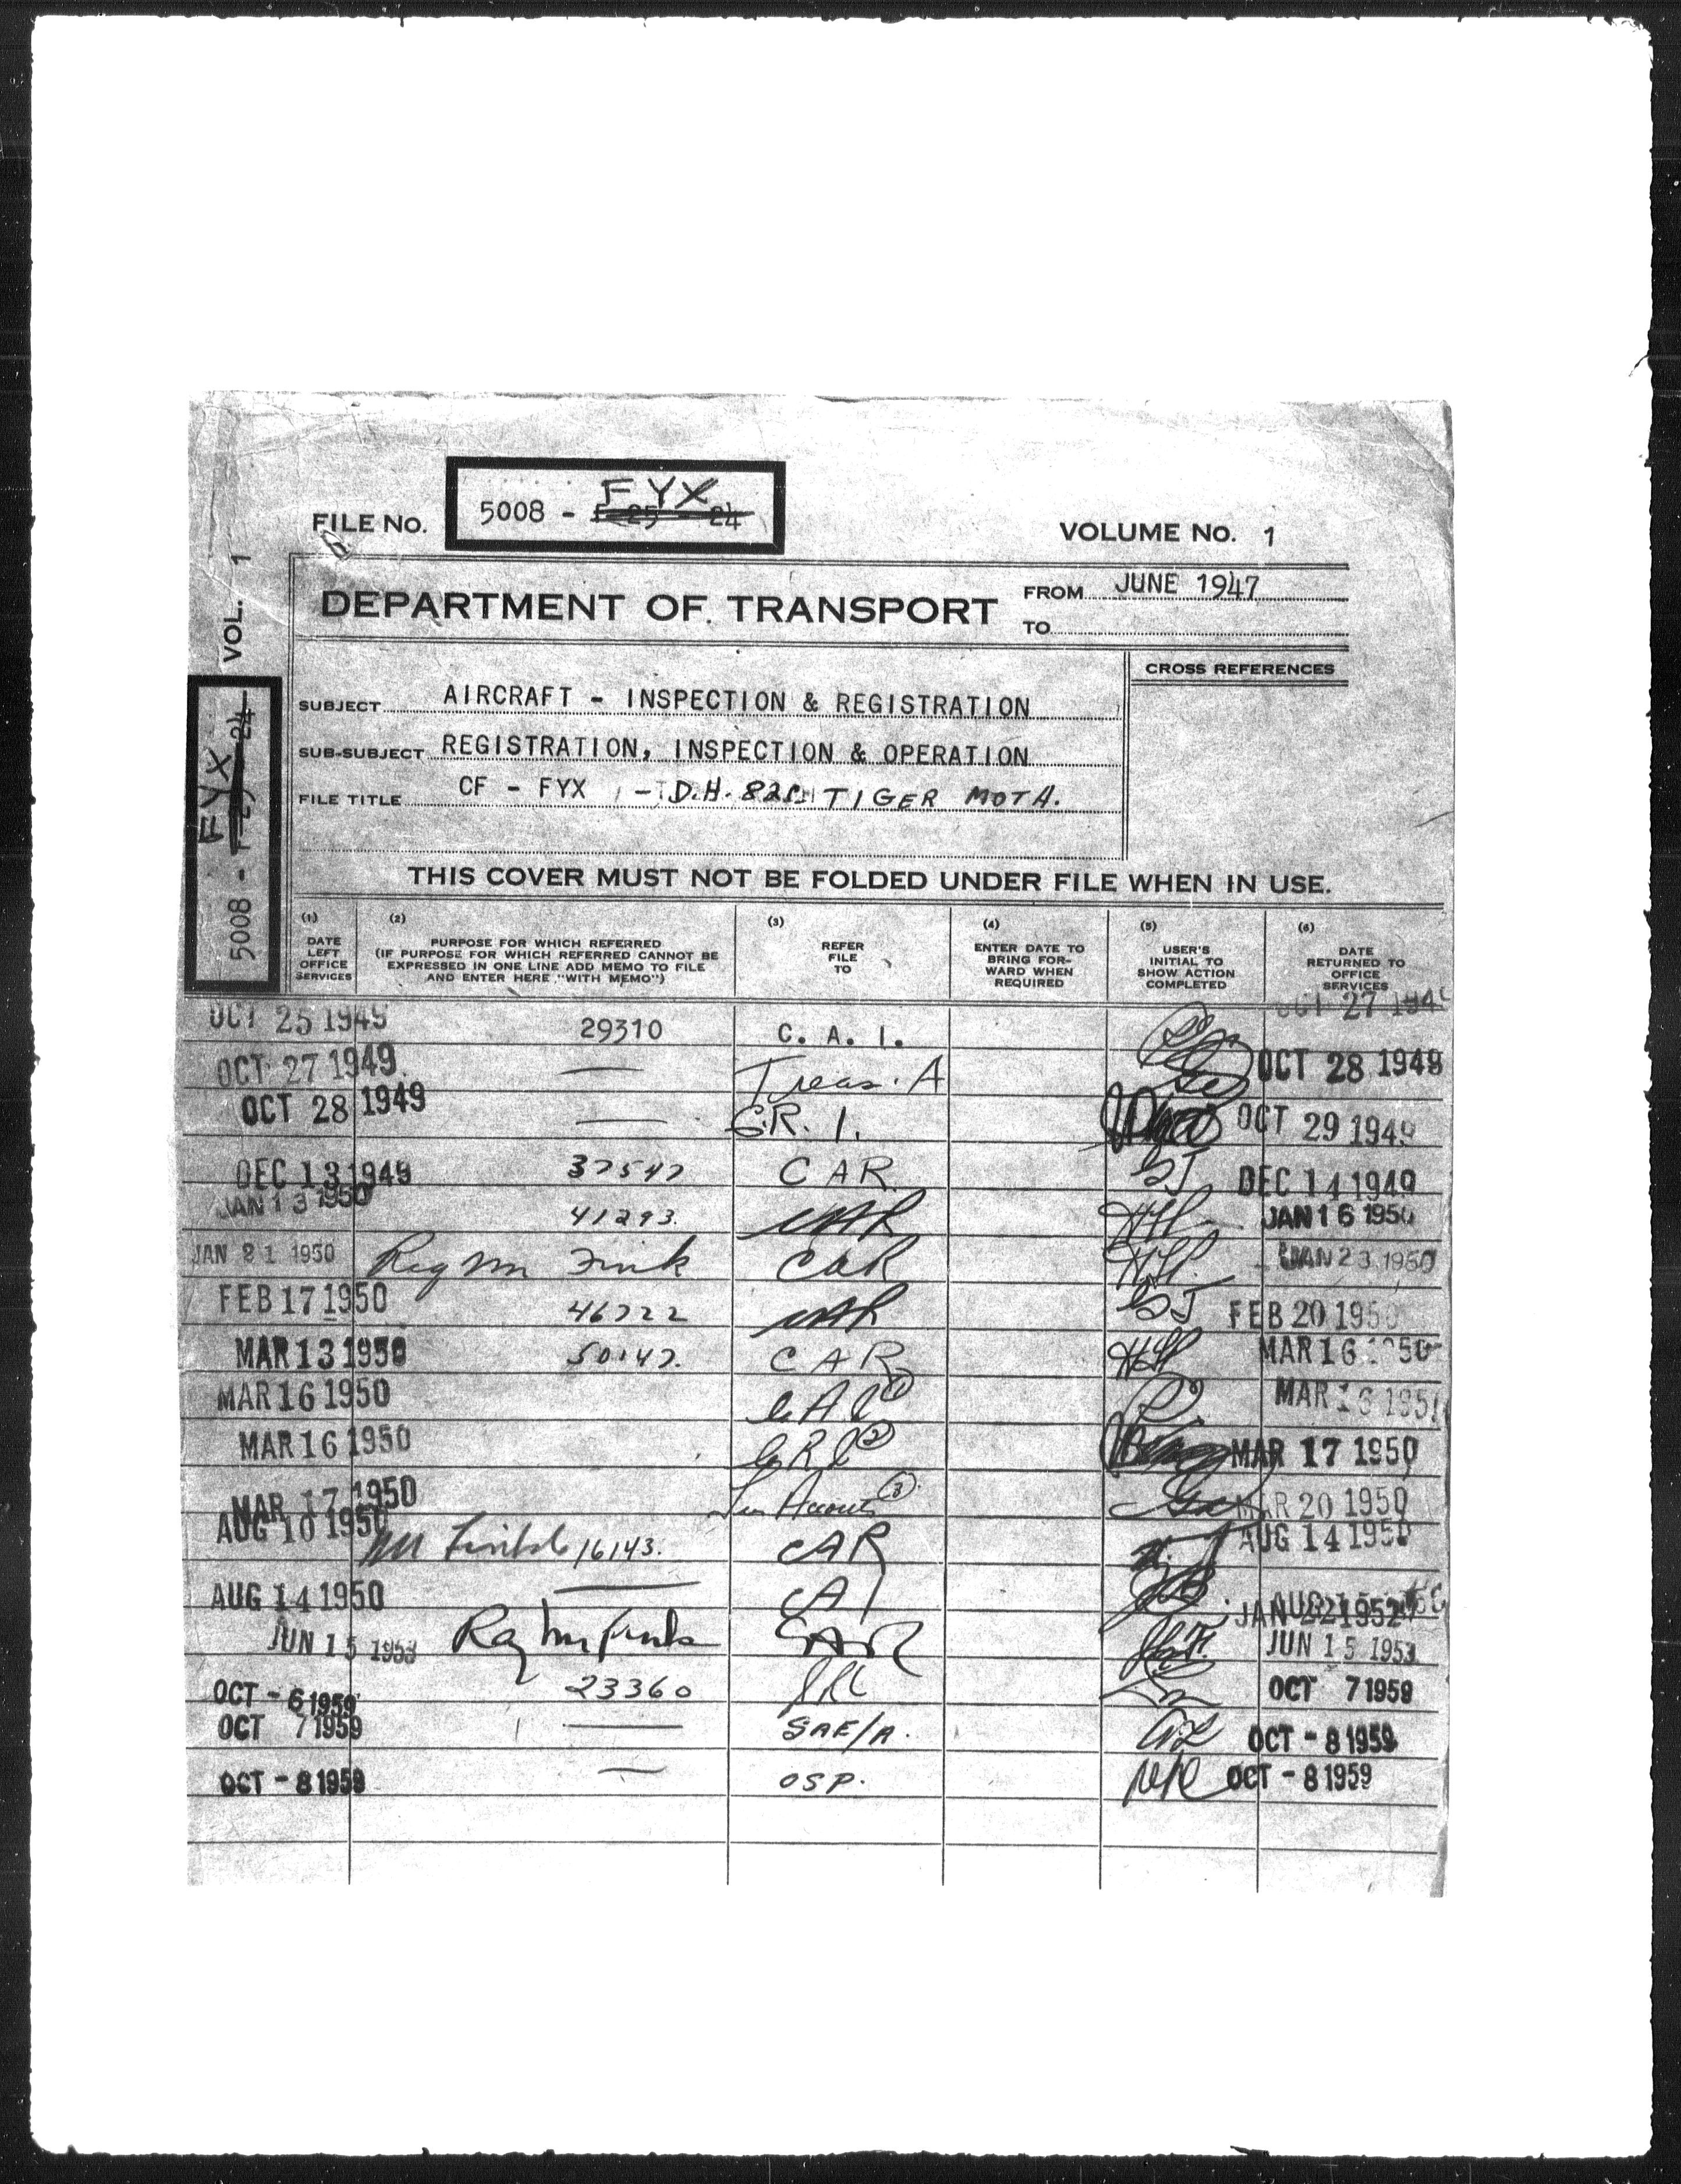 FILE No. 5008 - FYX
VOLUME No. 1
DEPARTMENT OF TRANSPORT
FROM JUNE 1947
TO
CROSS REFERENCES
SUBJECT AIRCRAFT - INSPECTION & REGISTRATION
SUB-SUBJECT REGISTRATION, INSPECTION & OPERATION
FILE TITLE CF - FYX - D.H. 82C TIGER MOTH.
VOL. 1
5008 - FYX
THIS COVER MUST NOT BE FOLDED UNDER FILE WHEN IN USE.
(1) DATE LEFT OFFICE SERVICES
(2) PURPOSE FOR WHICH REFERRED (IF PURPOSE FOR WHICH REFERRED CANNOT BE EXPRESSED IN ONE LINE ADD MEMO TO FILE AND ENTER HERE "WITH MEMO")
(3) REFER FILE TO
(4) ENTER DATE TO BRING FORWARD WHEN REQUIRED
(5) USER'S INITIAL TO SHOW ACTION COMPLETED
(6) DATE RETURNED TO OFFICE SERVICES
OCT 25 1949 29310 C. A. I. OCT 27 1949
OCT 27 1949 — Treas. A OCT 28 1949
OCT 28 1949 — G.R. 1. OCT 29 1949
DEC 13 1949 37547 CAR DEC 14 1949
JAN 13 1950 41293. CAR JAN 16 1950
JAN 21 1950 CAR JAN 23 1950
FEB 17 1950 46722 CAR FEB 20 1950
MAR 13 1950 50147. CAR MAR 16 1950
MAR 16 1950 MAR 16 1950
MAR 16 1950 MAR 17 1950
MAR 17 1950 MAR 20 1950
AUG 10 1950 16143. CAR AUG 14 1950
AUG 14 1950 — CAI AUG 15
JAN 22 1952
JUN 15 1953 CAR JUN 15 1953
OCT - 6 1959 23360 OCT 7 1959
OCT 7 1959 — SAE/A. OCT - 8 1959
OCT - 8 1959 — OSP. OCT - 8 1959